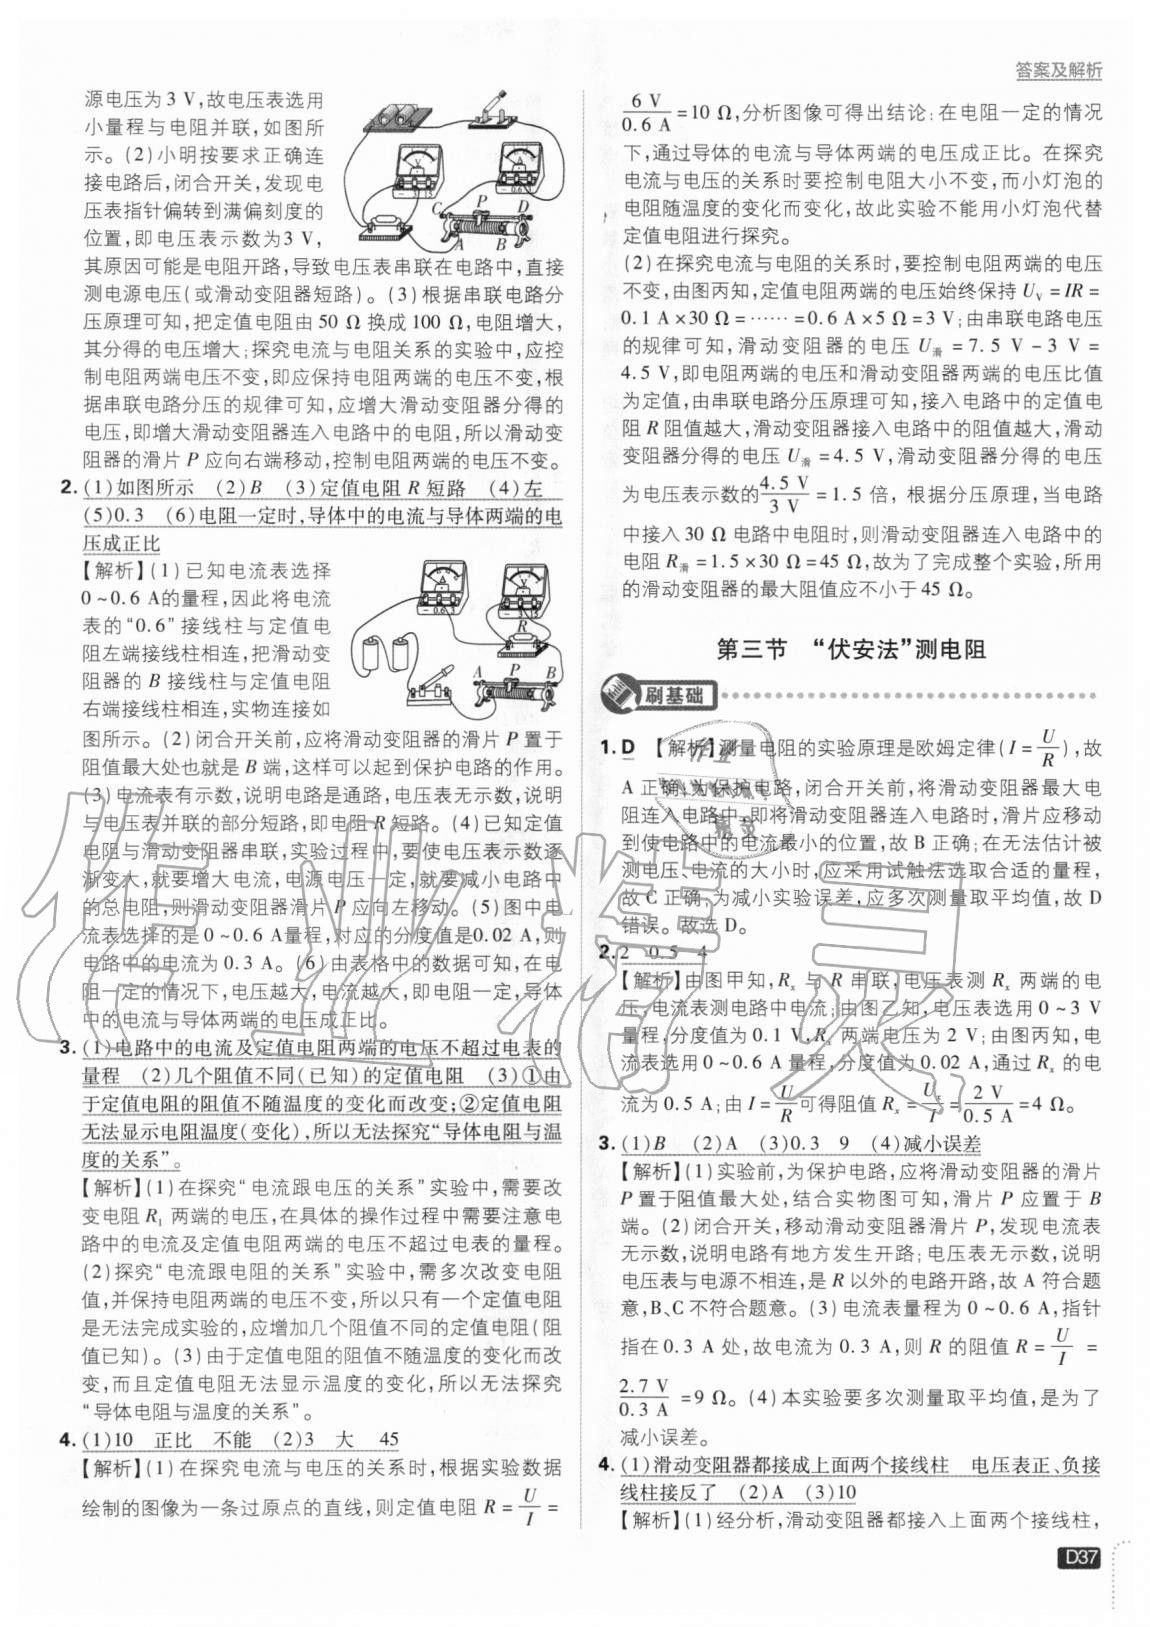 答案及解析
源电压为 3 V,故电压表选用
小量程与电阻并联,如图所
示。(2)小明按要求正确连
接电路后,闭合开关,发现电
压表指针偏转到满偏刻度的
位置,即电压表示数为3 V,
其原因可能是电阻开路,导致电压表串联在电路中,直接
测电源电压(或滑动变阻器短路)。(3)根据串联电路分
压原理可知,把定值电阻由 50 Ω 换成 100 Ω,电阻增大,
其分得的电压增大;探究电流与电阻关系的实验中,应控
制电阻两端电压不变,即应保持电阻两端的电压不变,根
据串联电路分压的规律可知,应增大滑动变阻器分得的
电压,即增大滑动变阻器连入电路中的电阻,所以滑动变
阻器的滑片 P 应向右端移动,控制电阻两端的电压不变。
2. (1)如图所示 (2)B (3)定值电阻 R 短路 (4)左
(5)0.3 (6)电阻一定时,导体中的电流与导体两端的电
压成正比
【解析】(1)已知电流表选择
0~0.6 A的量程,因此将电流
表的“0.6”接线柱与定值电
阻左端接线柱相连,把滑动变
阻器的 B 接线柱与定值电阻
右端接线柱相连,实物连接如
图所示。(2)闭合开关前,应将滑动变阻器的滑片 P 置于
阻值最大处也就是 B 端,这样可以起到保护电路的作用。
(3)电流表有示数,说明电路是通路,电压表无示数,说明
与电压表并联的部分短路,即电阻 R 短路。(4)已知定值
电阻与滑动变阻器串联,实验过程中,要使电压表示数逐
渐变大,就要增大电流,电源电压一定,就要减小电路中
的总电阻,则滑动变阻器滑片 P 应向左移动。(5)图中电
流表选择的是 0~0.6 A量程,对应的分度值是0.02 A,则
电路中的电流为 0.3 A。(6)由表格中的数据可知,在电
阻一定的情况下,电压越大,电流越大,即电阻一定,导体
中的电流与导体两端的电压成正比。
3. (1)电路中的电流及定值电阻两端的电压不超过电表的
量程 (2)几个阻值不同(已知)的定值电阻 (3)①由
于定值电阻的阻值不随温度的变化而改变;②定值电阻
无法显示电阻温度(变化),所以无法探究“导体电阻与温
度的关系”。
【解析】(1)在探究“电流跟电压的关系”实验中,需要改
变电阻 R₁ 两端的电压,在具体的操作过程中需要注意电
路中的电流及定值电阻两端的电压不超过电表的量程。
(2)探究“电流跟电阻的关系”实验中,需多次改变电阻
值,并保持电阻两端的电压不变,所以只有一个定值电阻
是无法完成实验的,应增加几个阻值不同的定值电阻(阻
值已知)。(3)由于定值电阻的阻值不随温度的变化而改
变,而且定值电阻无法显示温度的变化,所以无法探究
“导体电阻与温度的关系”。
4. (1)10 正比 不能 (2)3 大 45
【解析】(1)在探究电流与电压的关系时,根据实验数据
绘制的图像为一条过原点的直线,则定值电阻 R = U/I =
6 V/0.6 A =10 Ω,分析图像可得出结论:在电阻一定的情况
下,通过导体的电流与导体两端的电压成正比。在探究
电流与电压的关系时要控制电阻大小不变,而小灯泡的
电阻随温度的变化而变化,故此实验不能用小灯泡代替
定值电阻进行探究。
(2)在探究电流与电阻的关系时,要控制电阻两端的电压
不变,由图丙知,定值电阻两端的电压始终保持 U_V = IR =
0.1 A×30 Ω=……=0.6 A×5 Ω=3 V;由串联电路电压
的规律可知,滑动变阻器的电压 U滑 = 7.5 V - 3 V =
4.5 V,即电阻两端的电压和滑动变阻器两端的电压比值
为定值,由串联电路分压原理可知,接入电路中的定值电
阻 R 阻值越大,滑动变阻器接入电路中的阻值越大,滑动
变阻器分得的电压 U滑 =4.5 V,滑动变阻器分得的电压
为电压表示数的 4.5 V/3 V = 1.5 倍, 根据分压原理,当电路
中接入 30 Ω 电路中电阻时,则滑动变阻器连入电路中的
电阻 R滑 = 1.5×30 Ω=45 Ω,故为了完成整个实验,所用
的滑动变阻器的最大阻值应不小于 45 Ω。
第三节 “伏安法”测电阻
刷基础
1. D 【解析】测量电阻的实验原理是欧姆定律(I = U/R),故
A 正确;为保护电路,闭合开关前,将滑动变阻器最大电
阻连入电路中,即将滑动变阻器连入电路时,滑片应移动
到使电路中的电流最小的位置,故 B 正确;在无法估计被
测电压、电流的大小时,应采用试触法选取合适的量程,
故 C 正确;为减小实验误差,应多次测量取平均值,故 D
错误。故选 D。
2. 2 0.5 4
【解析】由图甲知,Rₓ 与 R 串联,电压表测 Rₓ 两端的电
压,电流表测电路中电流;由图乙知,电压表选用 0~3 V
量程,分度值为 0.1 V,Rₓ 两端电压为 2 V;由图丙知,电
流表选用 0~0.6 A量程,分度值为 0.02 A,通过 Rₓ 的电
流为 0.5 A;由 I = U/R 可得阻值 Rₓ = Uₓ/I = 2 V/0.5 A = 4 Ω。
3. (1)B (2)A (3)0.3 9 (4)减小误差
【解析】(1)实验前,为保护电路,应将滑动变阻器的滑片
P 置于阻值最大处,结合实物图可知,滑片 P 应置于 B
端。(2)闭合开关,移动滑动变阻器滑片 P,发现电流表
无示数,说明电路有地方发生开路;电压表无示数,说明
电压表与电源不相连,是 R 以外的电路开路,故 A 符合题
意,B、C 不符合题意。(3)电流表量程为 0~0.6 A,指针
指在 0.3 A 处,故电流为 0.3 A,则 R 的阻值 R = U/I =
2.7 V/0.3 A =9 Ω。(4)本实验要多次测量取平均值,是为了
减小误差。
4. (1)滑动变阻器都接成上面两个接线柱 电压表正、负接
线柱接反了 (2)A (3)10
【解析】(1)经分析,滑动变阻器都接入上面两个接线柱,
D37
作业精灵